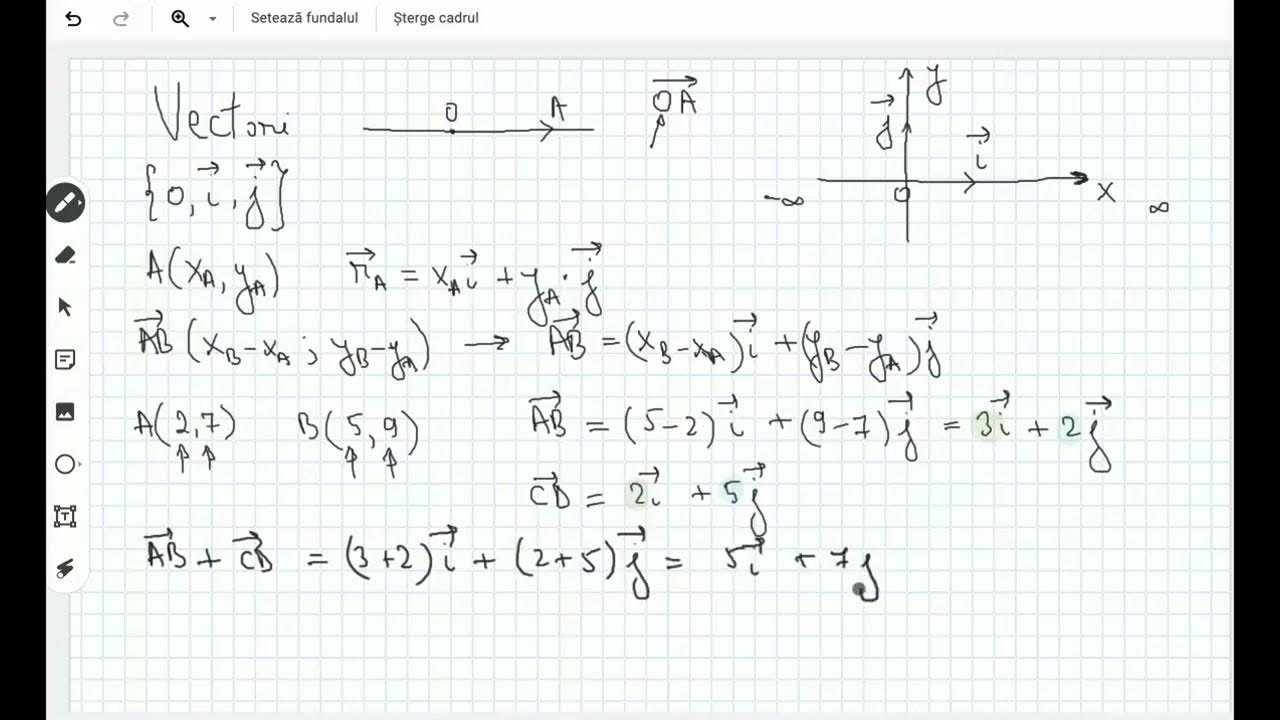 Setează fundalul Șterge cadrul
Vectorii O A \overrightarrow{OA} y \vec{j} \vec{i} O x -∞ ∞
{O, \vec{i}, \vec{j}}
A(x_A, y_A) \vec{r}_A = x_A \vec{i} + y_A · \vec{j}
\overrightarrow{AB} (x_B - x_A ; y_B - y_A) → \overrightarrow{AB} = (x_B - x_A)\vec{i} + (y_B - y_A)\vec{j}
A(2,7) B(5,9) \overrightarrow{AB} = (5-2)\vec{i} + (9-7)\vec{j} = 3\vec{i} + 2\vec{j}
\overrightarrow{CD} = 2\vec{i} + 5\vec{j}
\overrightarrow{AB} + \overrightarrow{CD} = (3+2)\vec{i} + (2+5)\vec{j} = 5\vec{i} + 7j